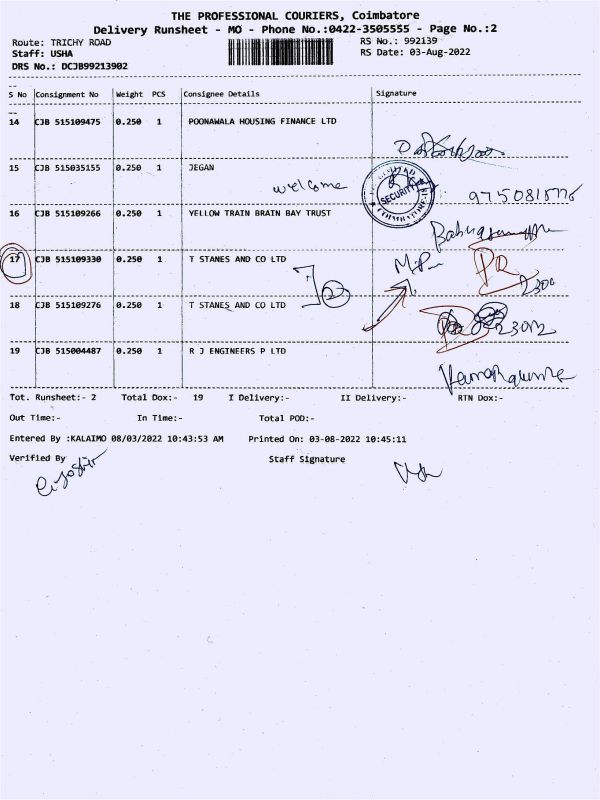 THE PROFESSIONAL COURIERS, Coimbatore
Delivery Runsheet - MO - Phone No.:0422-3505555 - Page No.:2
Route: TRICHY ROAD RS No.: 992139
Staff: USHA RS Date: 03-Aug-2022
DRS No.: DCJB99213902
S No Consignment No Weight PCS Consignee Details Signature
14 CJB 515109475 0.250 1 POONAWALA HOUSING FINANCE LTD
15 CJB 515035155 0.250 1 JEGAN
welcome
SECURITY
16 CJB 515109266 0.250 1 YELLOW TRAIN BRAIN BAY TRUST
17 CJB 515109330 0.250 1 T STANES AND CO LTD
18 CJB 515109276 0.250 1 T STANES AND CO LTD
19 CJB 515004487 0.250 1 R J ENGINEERS P LTD
Tot. Runsheet:- 2 Total Dox:- 19 I Delivery:- II Delivery:- RTN Dox:-
Out Time:- In Time:- Total POD:-
Entered By :KALAIMO 08/03/2022 10:43:53 AM Printed On: 03-08-2022 10:45:11
Verified By Staff Signature